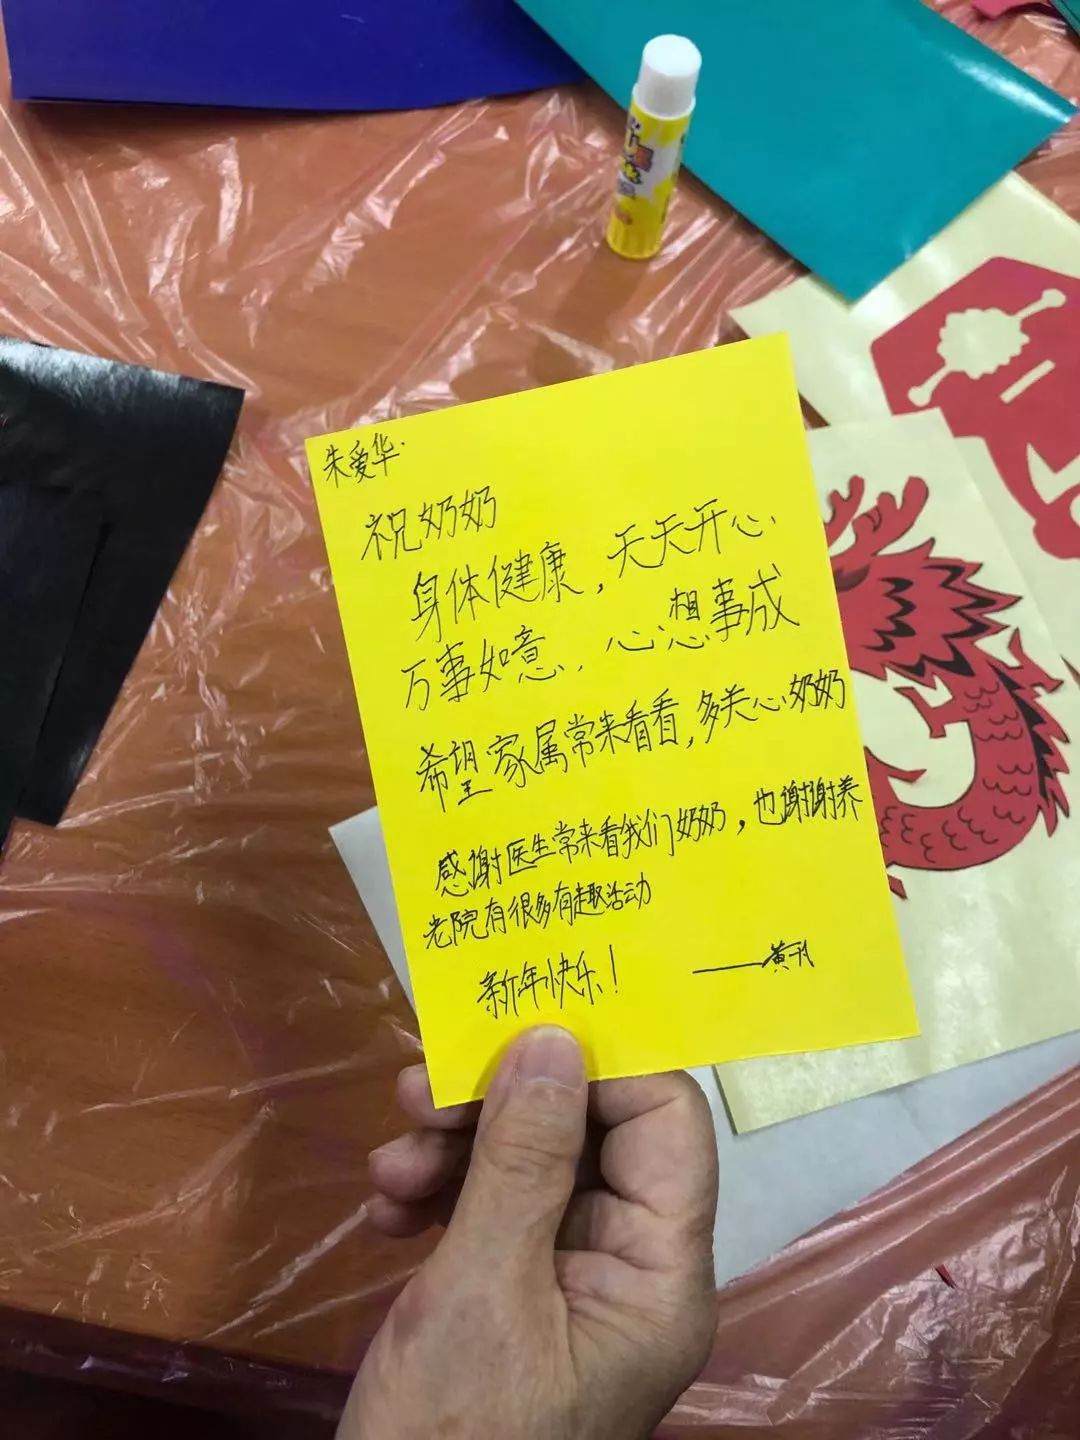 朱爱华.
祝奶奶
身体健康，天天开心
万事如意，心想事成
希望家属常来看看,多关心奶奶
感谢医生常来看我们奶奶，也谢谢养
老院有很多有趣活动
新年快乐！
——黄